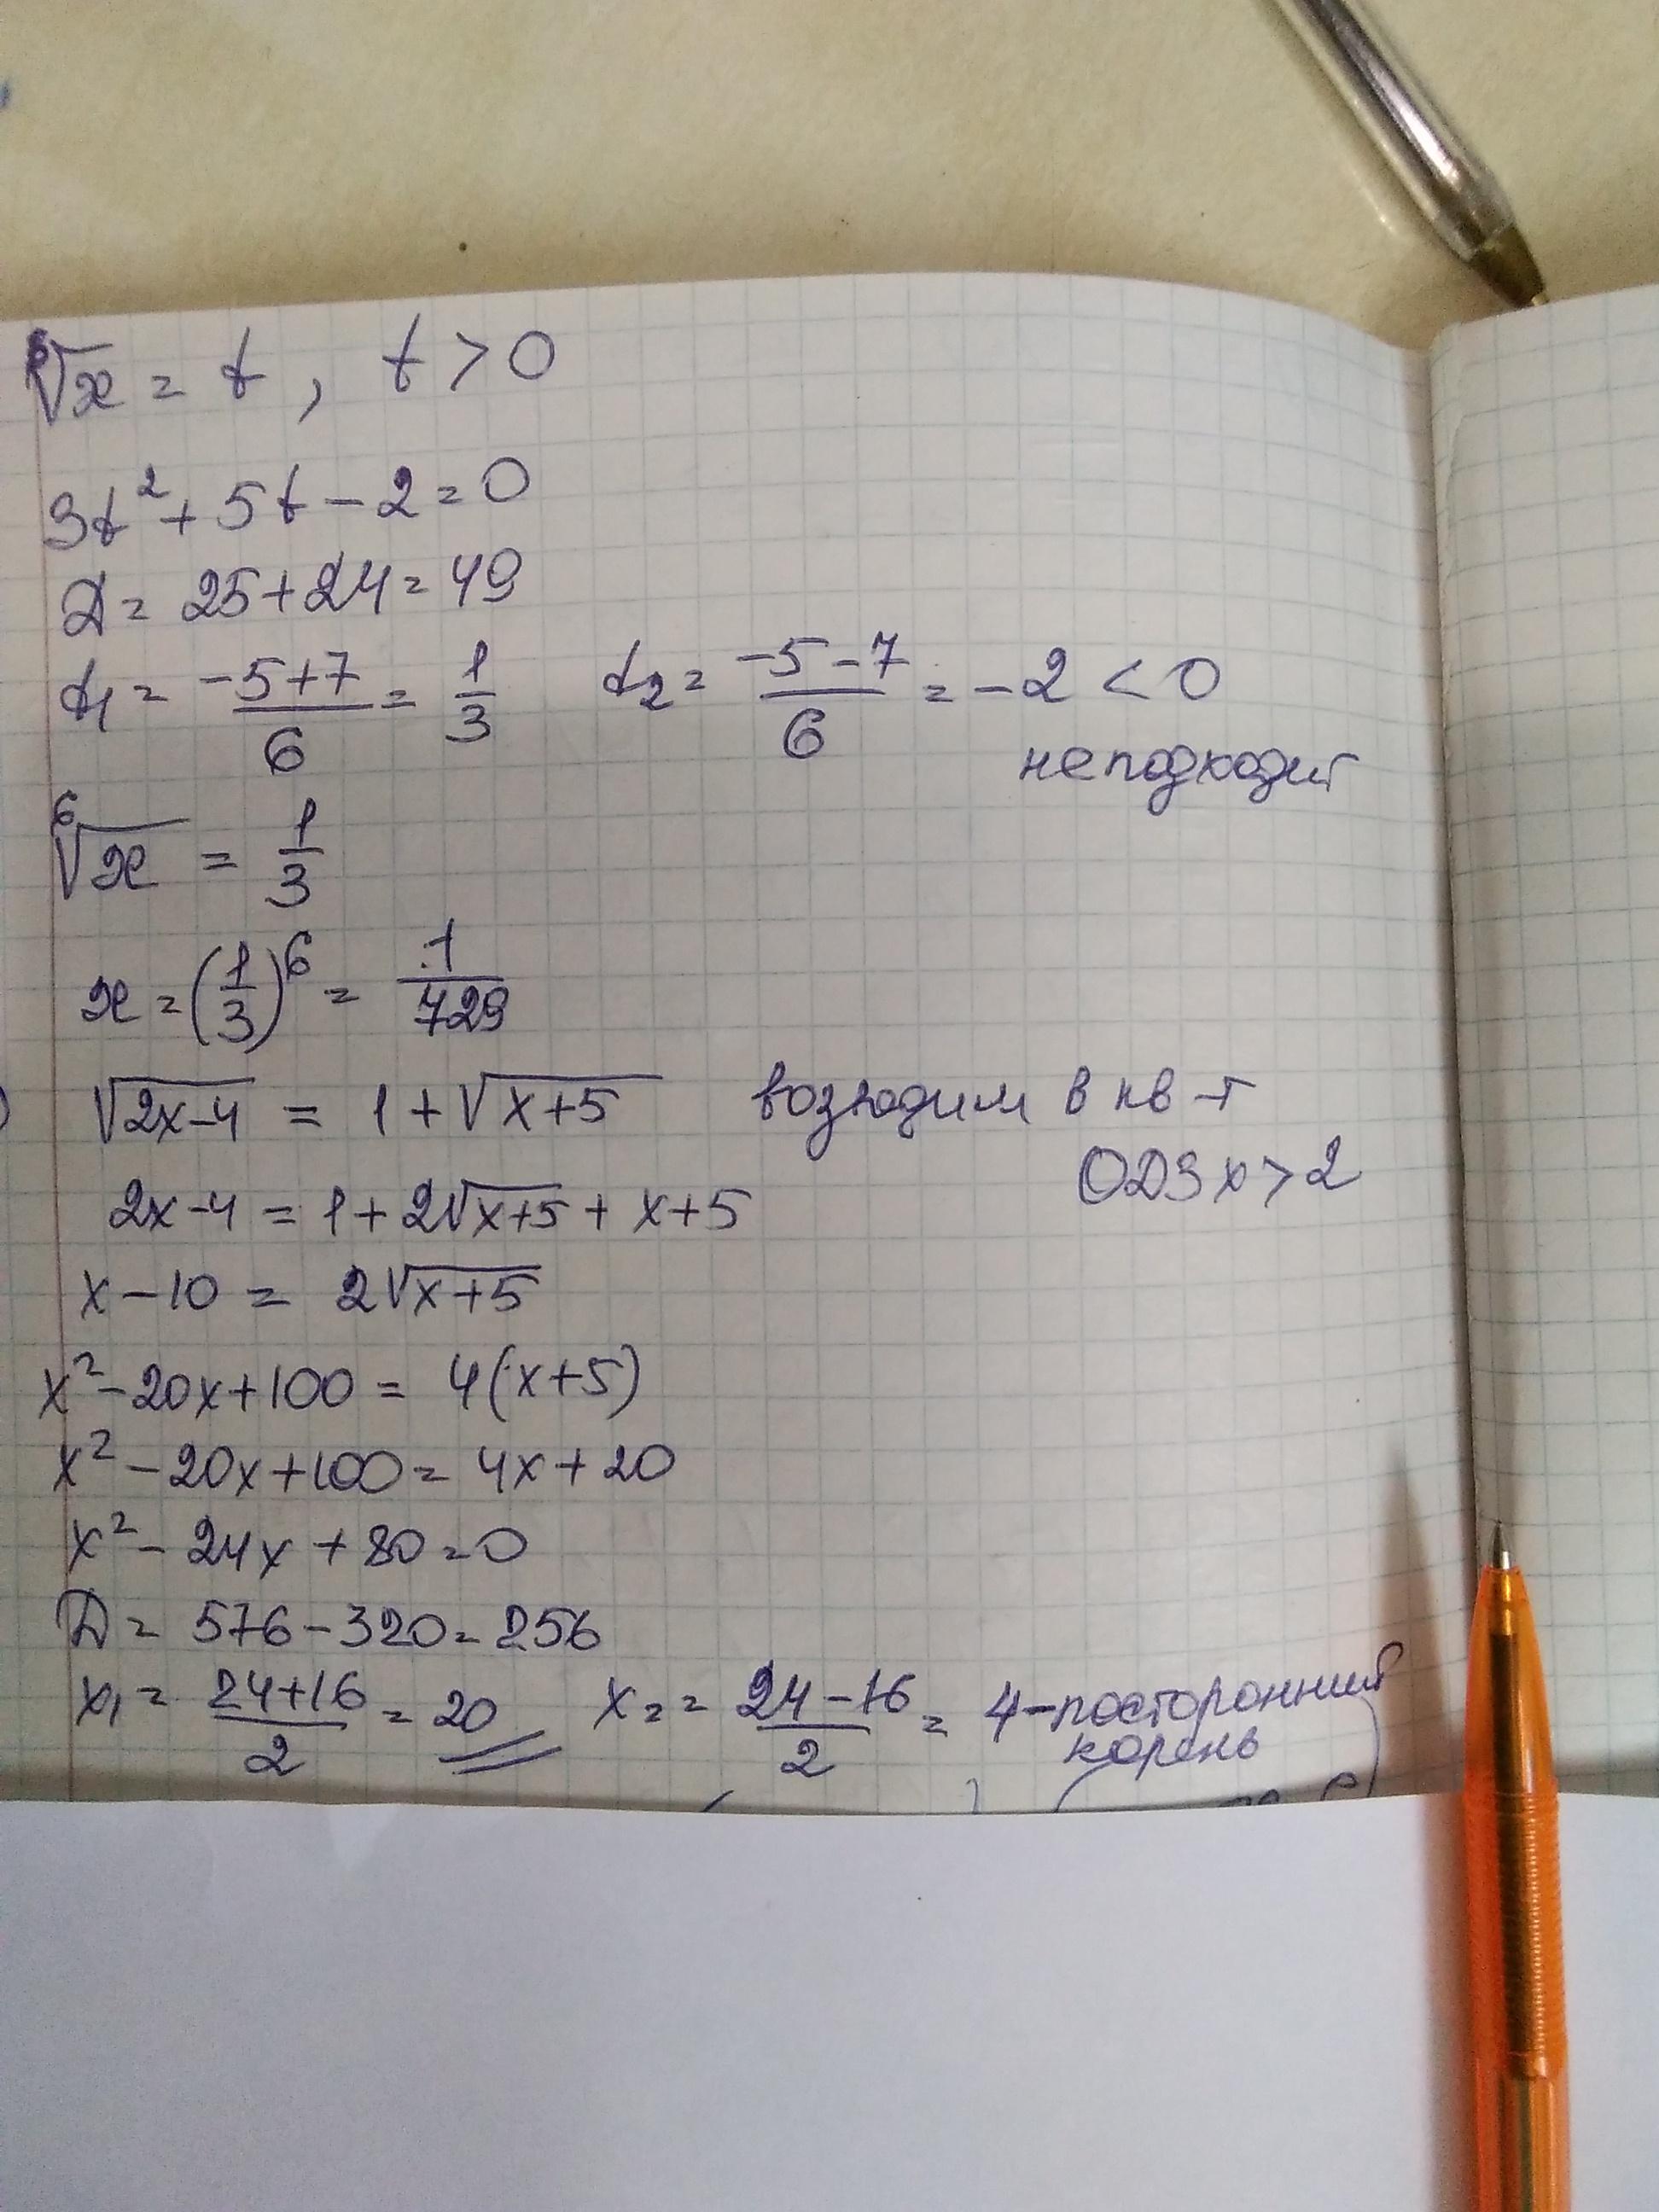 ⁶√x = t, t > 0
3t² + 5t - 2 = 0
D = 25 + 24 = 49
t₁ = (-5+7)/6 = 1/3 t₂ = (-5-7)/6 = -2 < 0
не подходит
⁶√x = 1/3
x = (1/3)⁶ = 1/729
) √(2x-4) = 1 + √(x+5) возводим в кв-т
ОДЗ x > 2
2x-4 = 1 + 2√(x+5) + x+5
x - 10 = 2√(x+5)
x² - 20x + 100 = 4(x+5)
x² - 20x + 100 = 4x + 20
x² - 24x + 80 = 0
D = 576 - 320 = 256
x₁ = (24+16)/2 = 20 x₂ = (24-16)/2 = 4 - посторонний
корень